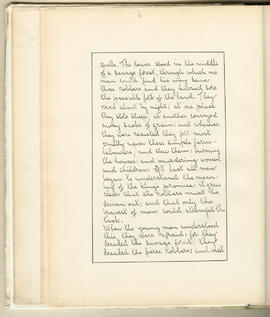 Wells. The tower stood in the middle
of a savage forest, through which no
man could find his way save
these robbers and they harried sore
the peaceable folk of the land. They
roved about by night; at one place
they stole sheep, at another conveyed
away sacks of grain: and whenever
they were resisted they fell most
cruelly upon these simple farm-
labourers, and slew them: burning
the houses: and murdering women
and children. At last all men
began to understand the mean-
ing of the kings promise: it grew
clear that the robbers must be
driven out; and that only the
bravest of men would attempt the
task.
When the young men understood
this, they were afraid; for they
dreaded the savage forest; they
dreaded the fierce robbers; and most